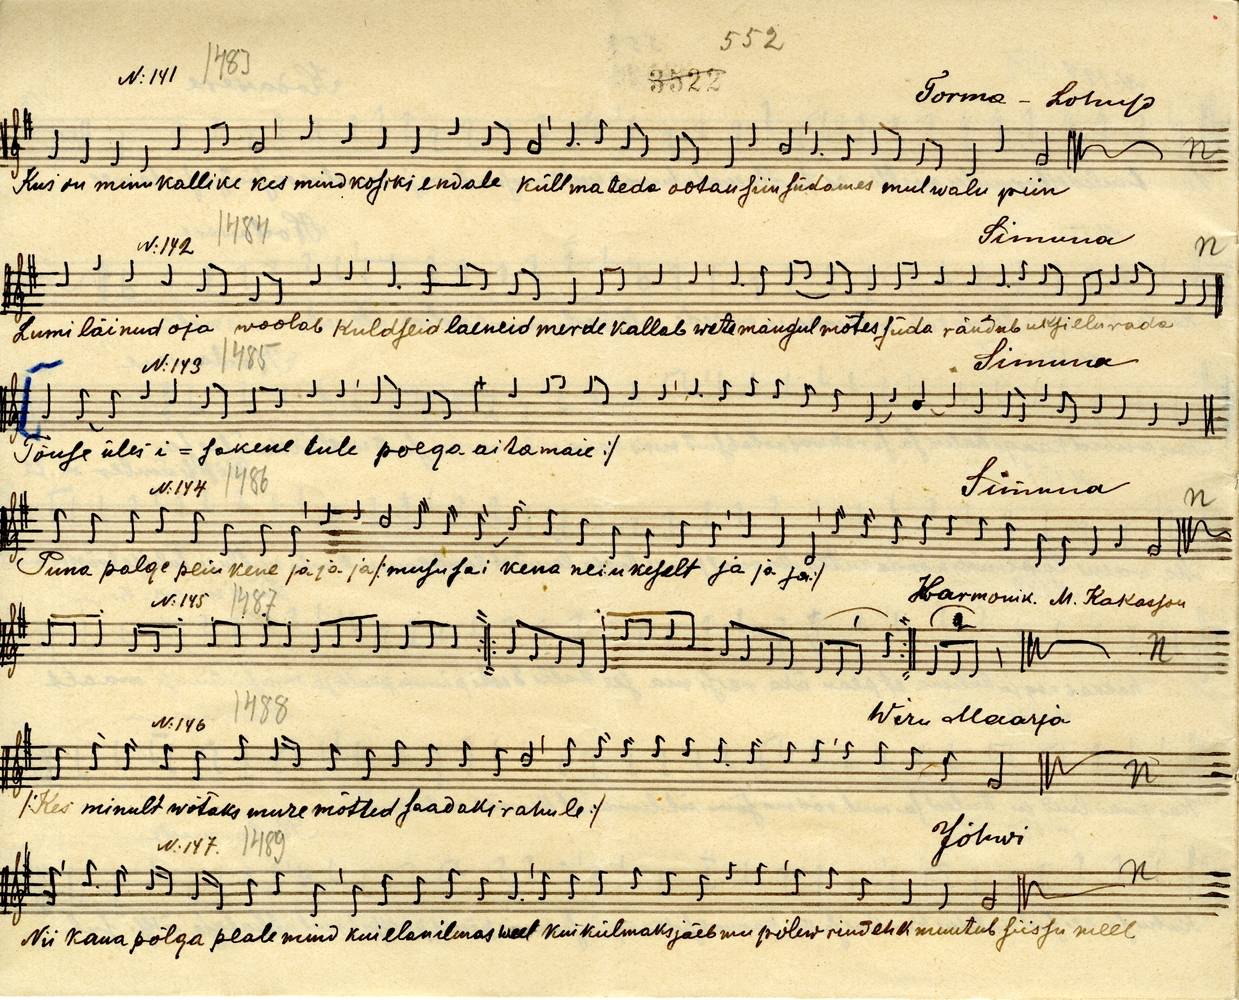 552
3522
N: 141 1483 Torma - Lohusp
Kus on minu kallike kes mind kosiks endale küll ma teda ootan siin südames mul walu piin
N: 142 1484 Simuna n
Lumi läinud oja woolab kuldseid laeneid merde kallab wete mängul mõtes süda rändab uksi elurada
N: 143 1485 Simuna
Tõuse üles i = sakene tule poega aitamaie :/
N: 144 1486 Simuna n
Puna palge peiukene ja ja ja /: musu sai kena neiukeselt ja ja ja :/
N: 145 1487 Harmonik. M. Kakasson
n
N: 146 1488 Wiru Maarja
n
/: Kes minult wõtaks mure mõtted saadaks rahule :/
N: 147. 1489 Jõhwi
n
Nii kaua põlga peale mind kui elan ilmas weel kui külmaks jäeb mu põlew rind ehk muutub siis su meel